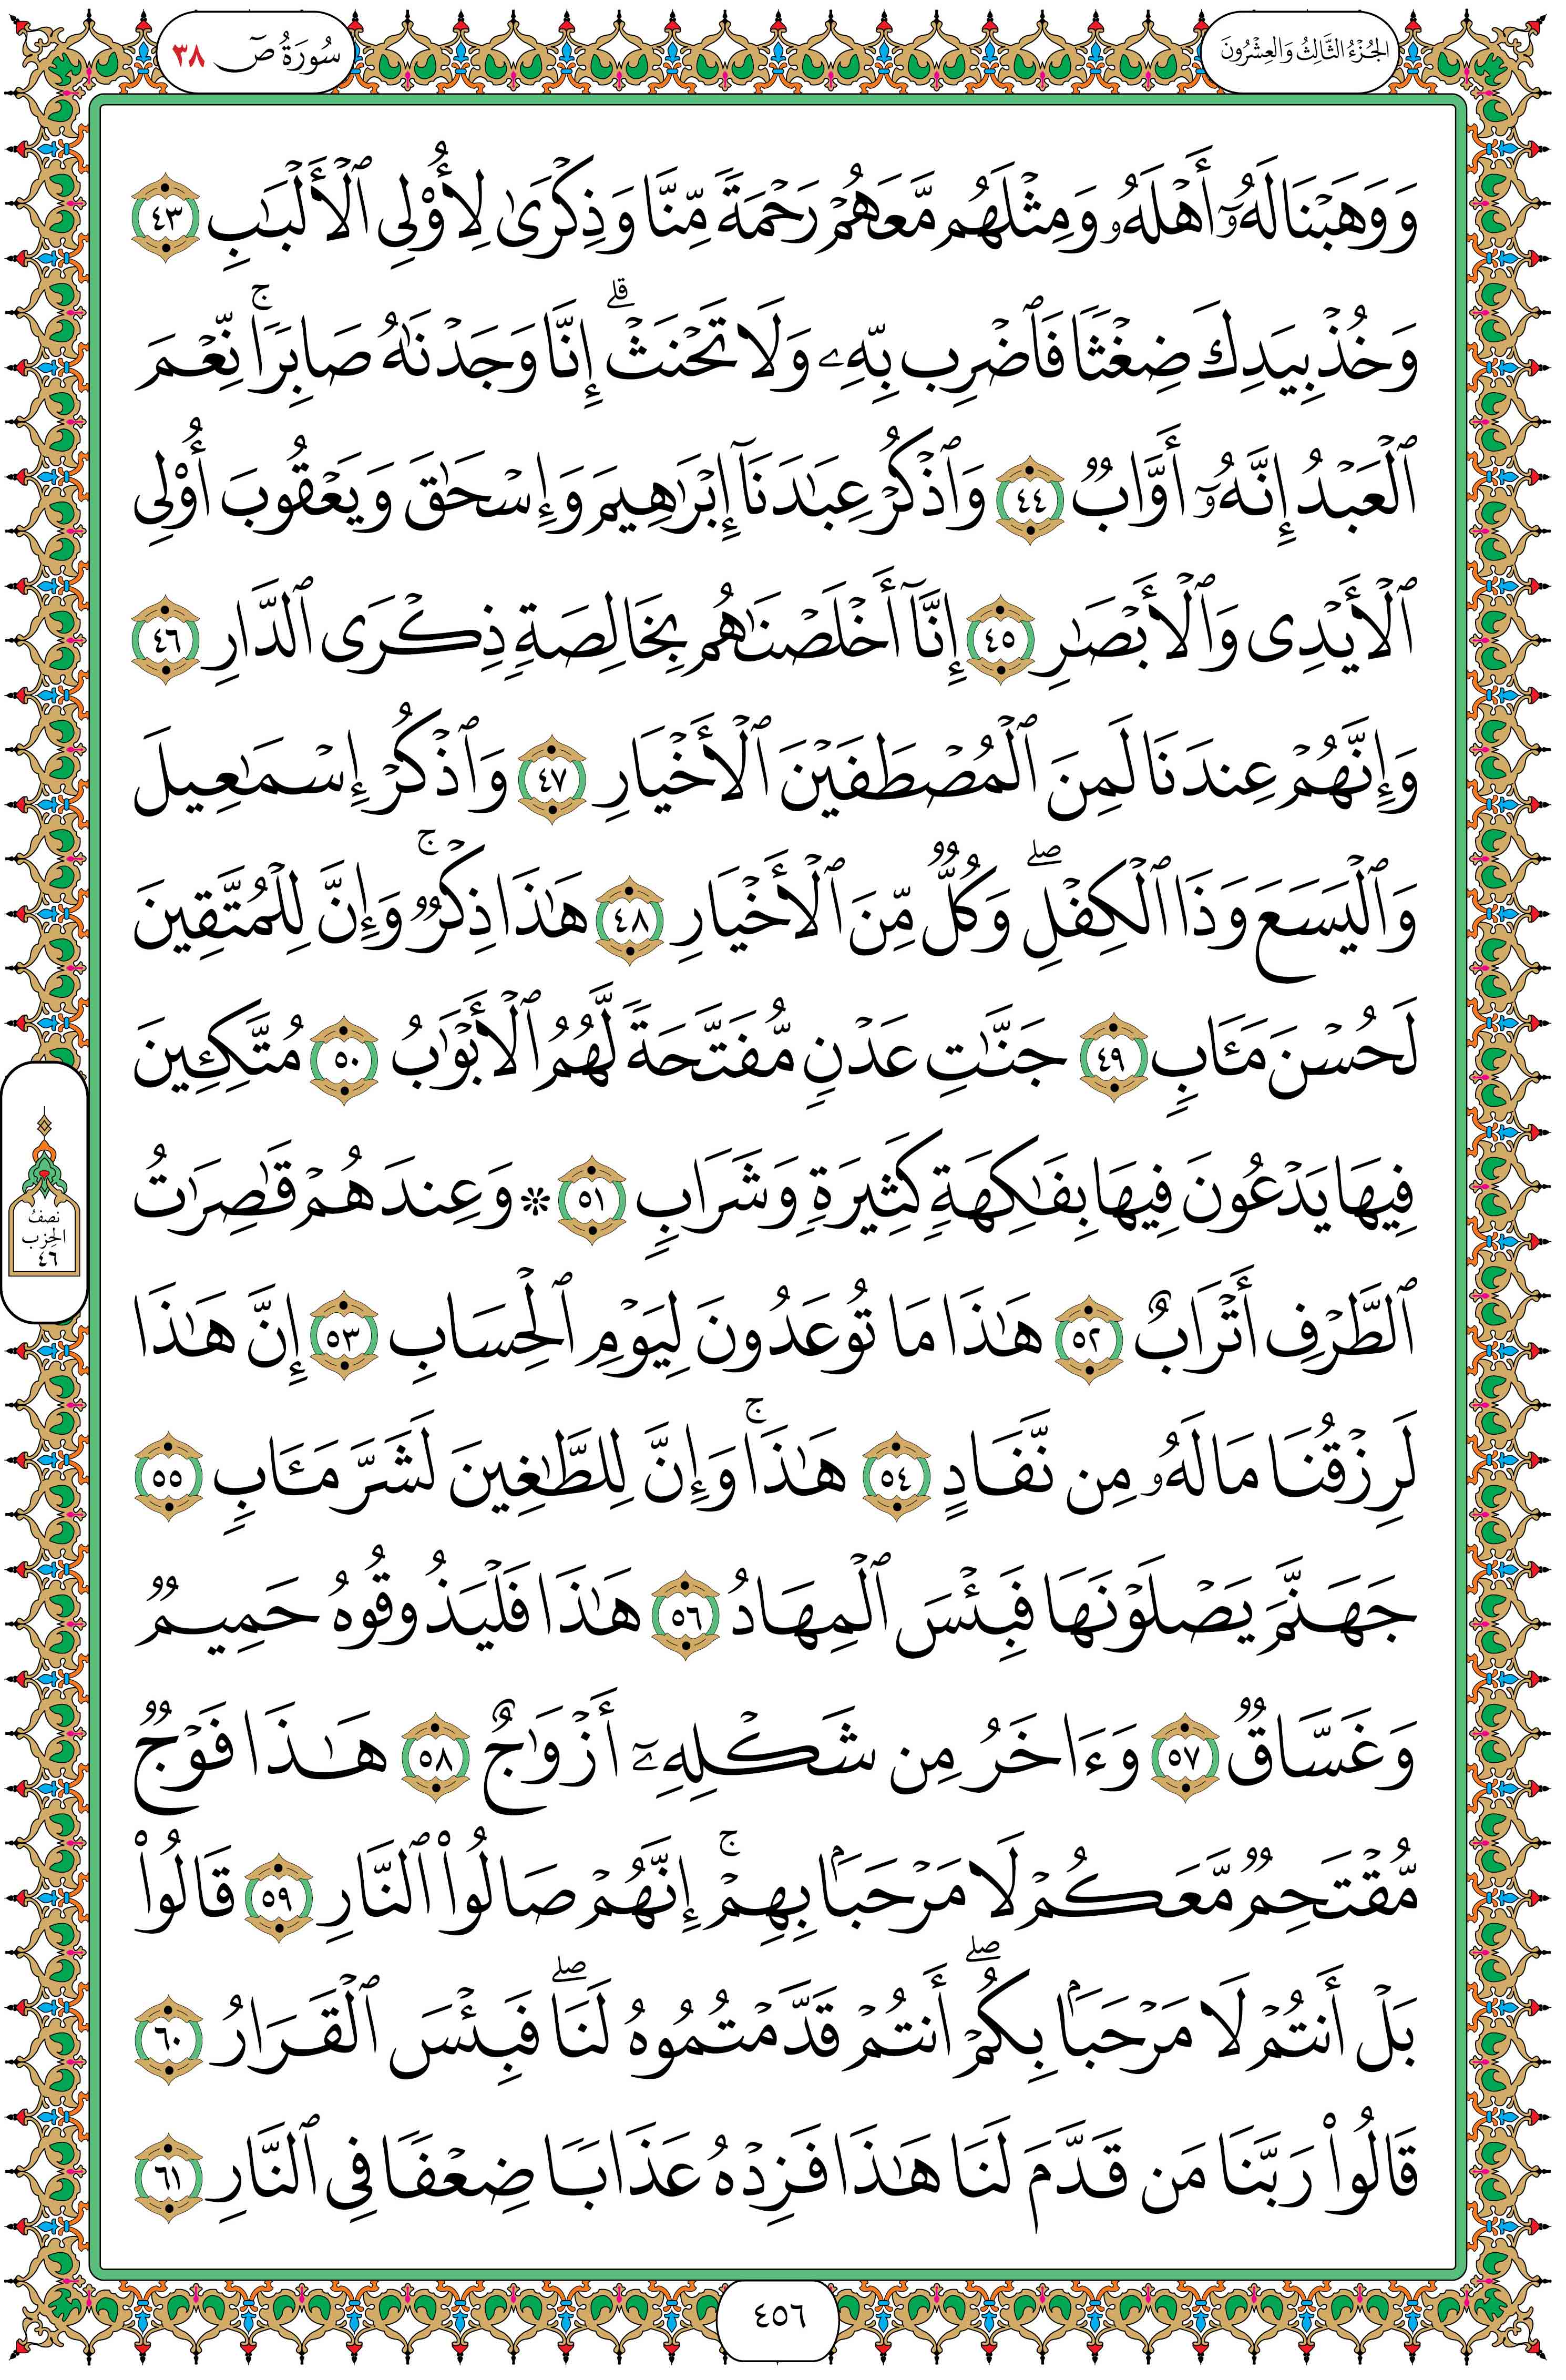 الجُزْءُ الثَّالِثُ وَالعِشْرُونَ
سُورَةُ صٓ ٣٨
وَوَهَبْنَا لَهُۥٓ أَهْلَهُۥ وَمِثْلَهُم مَّعَهُمْ رَحْمَةً مِّنَّا وَذِكْرَىٰ لِأُو۟لِى ٱلْأَلْبَٰبِ ٤٣
وَخُذْ بِيَدِكَ ضِغْثًا فَٱضْرِب بِّهِۦ وَلَا تَحْنَثْ ۗ إِنَّا وَجَدْنَٰهُ صَابِرًا ۚ نِّعْمَ
ٱلْعَبْدُ إِنَّهُۥٓ أَوَّابٌ ٤٤ وَٱذْكُرْ عِبَٰدَنَآ إِبْرَٰهِيمَ وَإِسْحَٰقَ وَيَعْقُوبَ أُو۟لِى
ٱلْأَيْدِى وَٱلْأَبْصَٰرِ ٤٥ إِنَّآ أَخْلَصْنَٰهُم بِخَالِصَةٍ ذِكْرَى ٱلدَّارِ ٤٦
وَإِنَّهُمْ عِندَنَا لَمِنَ ٱلْمُصْطَفَيْنَ ٱلْأَخْيَارِ ٤٧ وَٱذْكُرْ إِسْمَٰعِيلَ
وَٱلْيَسَعَ وَذَا ٱلْكِفْلِ ۖ وَكُلٌّ مِّنَ ٱلْأَخْيَارِ ٤٨ هَٰذَا ذِكْرٌ ۚ وَإِنَّ لِلْمُتَّقِينَ
لَحُسْنَ مَـَٔابٍ ٤٩ جَنَّٰتِ عَدْنٍ مُّفَتَّحَةً لَّهُمُ ٱلْأَبْوَٰبُ ٥٠ مُتَّكِـِٔينَ
فِيهَا يَدْعُونَ فِيهَا بِفَٰكِهَةٍ كَثِيرَةٍ وَشَرَابٍ ٥١ ۞ وَعِندَهُمْ قَٰصِرَٰتُ
ٱلطَّرْفِ أَتْرَابٌ ٥٢ هَٰذَا مَا تُوعَدُونَ لِيَوْمِ ٱلْحِسَابِ ٥٣ إِنَّ هَٰذَا
لَرِزْقُنَا مَا لَهُۥ مِن نَّفَادٍ ٥٤ هَٰذَا ۚ وَإِنَّ لِلطَّٰغِينَ لَشَرَّ مَـَٔابٍ ٥٥
جَهَنَّمَ يَصْلَوْنَهَا فَبِئْسَ ٱلْمِهَادُ ٥٦ هَٰذَا فَلْيَذُوقُوهُ حَمِيمٌ
وَغَسَّاقٌ ٥٧ وَءَاخَرُ مِن شَكْلِهِۦٓ أَزْوَٰجٌ ٥٨ هَٰذَا فَوْجٌ
مُّقْتَحِمٌ مَّعَكُمْ لَا مَرْحَبًۢا بِهِمْ ۚ إِنَّهُمْ صَالُوا۟ ٱلنَّارِ ٥٩ قَالُوا۟
بَلْ أَنتُمْ لَا مَرْحَبًۢا بِكُمْ ۖ أَنتُمْ قَدَّمْتُمُوهُ لَنَا ۖ فَبِئْسَ ٱلْقَرَارُ ٦٠
قَالُوا۟ رَبَّنَا مَن قَدَّمَ لَنَا هَٰذَا فَزِدْهُ عَذَابًا ضِعْفًا فِى ٱلنَّارِ ٦١
نصفُ
الحِزب
٤٦
٤٥٦